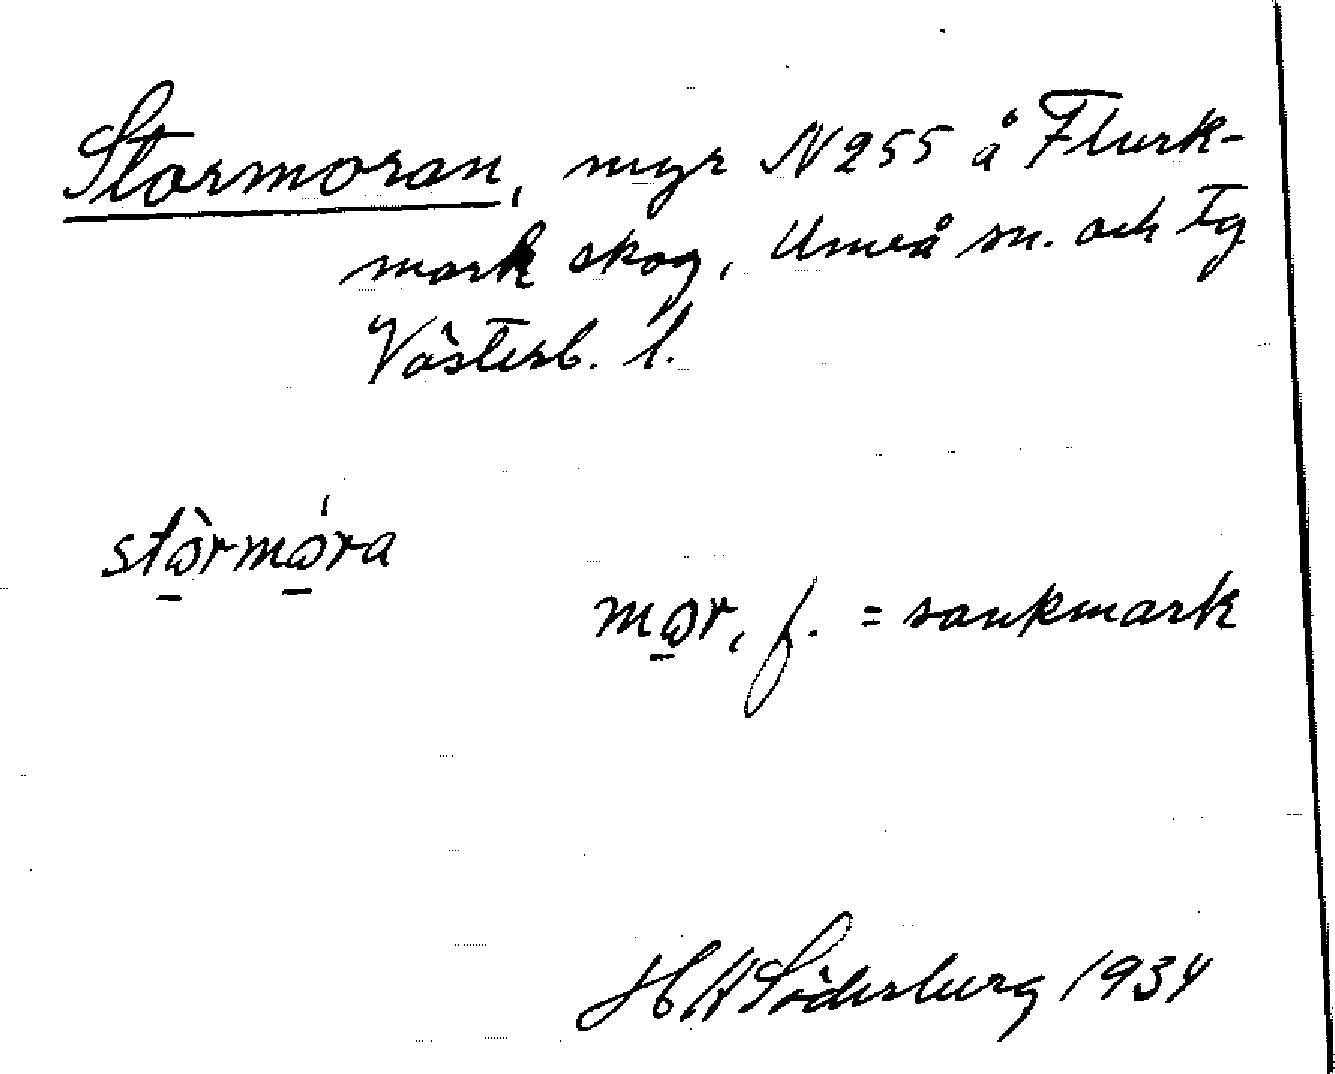 Stormoran, myr N255 å Flurk-
mark skog, Umeå sn. och tg
Västerb. l.
stɷ̠̀rmɷ̠́ra
mɷ̠r, f. = sankmark
H A Söderberg 1934